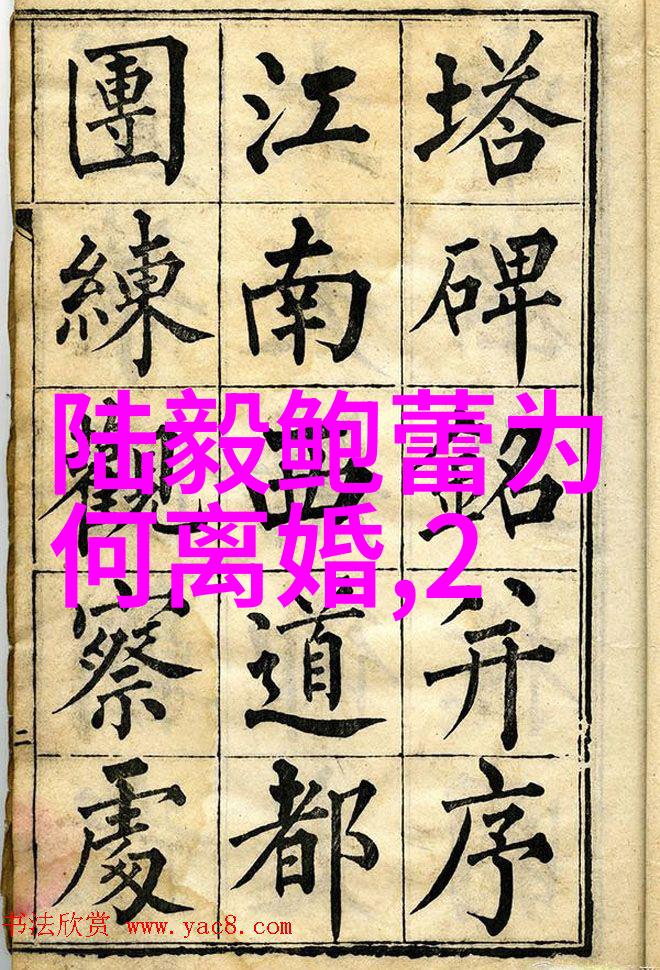 塔碑銘并序
江南西道都
團練觀察處
二
陆毅鲍蕾为
何离婚,2
书法欣赏 www.yac8.com